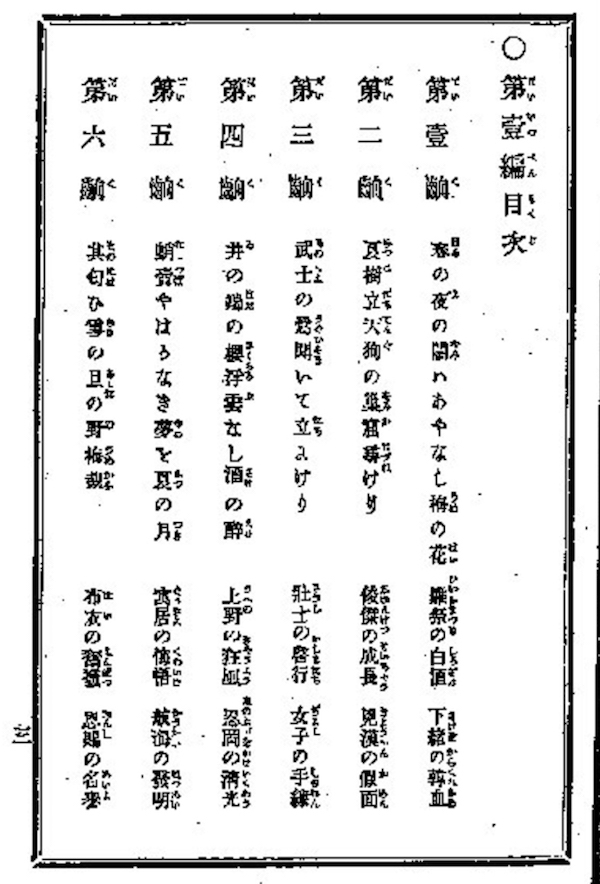 ○第壹編目次
第壹齣 春の夜の闇ハあやなし梅の花 雛祭の白酒 下緒の韓血
第二齣 夏樹立天狗の巣窟尋けり 俊傑の成長 兇漢の假面
第三齣 武士の鶯聞いて立にけり 壯士の啓行 女子の手練
第四齣 井の端の櫻浮雲なし酒の醉 上野の狂風 忍岡の清光
第五齣 蛸壺やはかなき夢を夏の月 寓居の悔悟 航海の發明
第六齣 其匂ひ雪の旦の野梅哉 布衣の奮發 恩賜の名